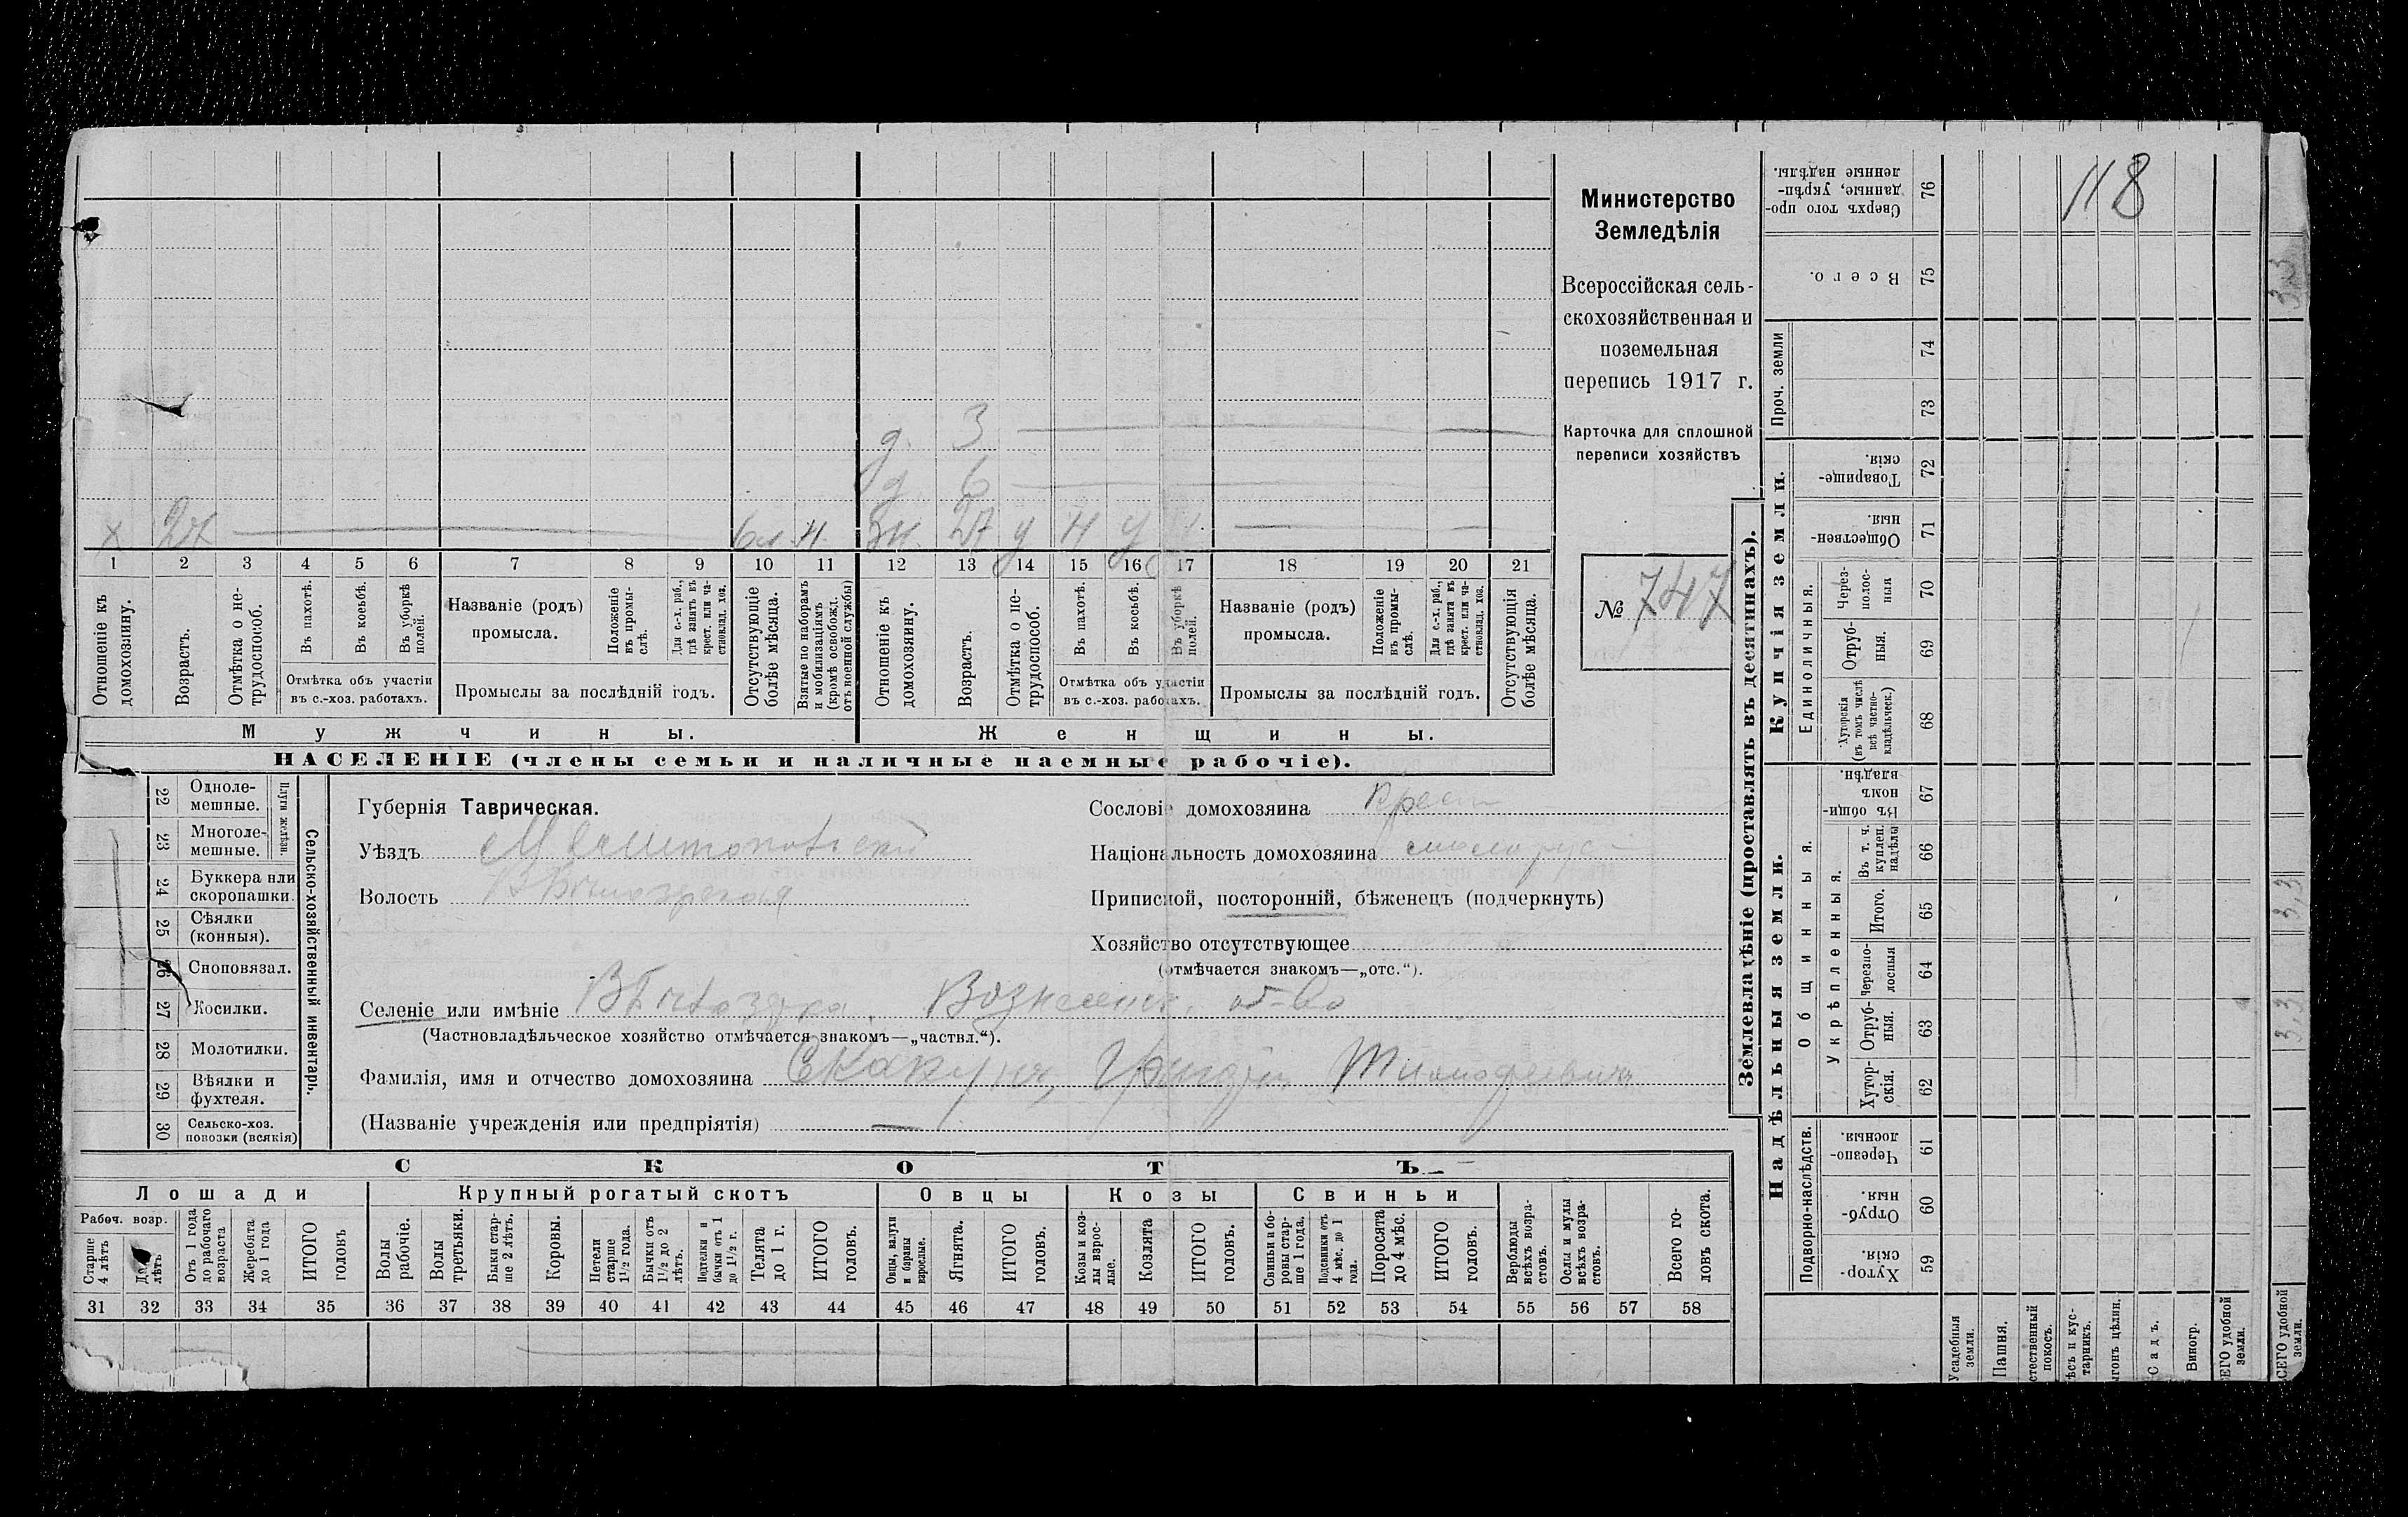 Министерство
Земледѣлія
Всероссійская сель-
скохозяйственная и
поземельная
перепись 1917 г.
Карточка для сплошной
переписи хозяйствъ
№ 747
118
д. 3
д 6
х 27 н. 27 у н у
1 2 3 4 5 6 7 8 9 10 11 12 13 14 15 16 17 18 19 20 21
Отношеніе къ домохозяину.
Возрастъ.
Отмѣтка о не-трудоспособ.
Въ пахотѣ.
Въ косьбѣ.
Въ уборкѣ полей.
Отмѣтка объ участіи
въ с.-хоз. работахъ.
Названіе (родъ)
промысла.
Положеніе въ промы-слѣ.
Для с.-х. раб., гдѣ занятъ въ крест. или ча-стновлад. хоз.
Промыслы за послѣдній годъ.
Отсутствующіе болѣе мѣсяца.
Взятые по наборамъ и мобилизаціямъ (кромѣ освобожд. отъ военной службы)
Отношеніе къ домохозяину.
Возрастъ.
Отмѣтка о не-трудоспособ.
Въ пахотѣ.
Въ косьбѣ.
Въ уборкѣ полей.
Отмѣтка объ участіи
въ с.-хоз. работахъ.
Названіе (родъ)
промысла.
Положеніе въ промы-слѣ.
Для с.-х. раб., гдѣ занята въ крест. или ча-стновлад. хоз.
Промыслы за послѣдній годъ.
Отсутствующія болѣе мѣсяца.
Мужчины.
Женщины.
НАСЕЛЕНІЕ (члены семьи и наличные наемные рабочіе).
22 Одноле-мешные.
23 Многоле-мешные.
Плуги желѣзн.
24 Буккера или скоропашки.
25 Сѣялки (конныя).
26 Сноповязал.
27 Косилки.
28 Молотилки.
29 Вѣялки и фухтеля.
30 Сельско-хоз. повозки (всякія)
Сельско-хозяйственный инвентарь.
Губернія Таврическая.
Уѣздъ Мелитопольскій
Волость В Бѣлозерская
Сословіе домохозяина Крест
Національность домохозяина малорус
Приписной, посторонній, бѣженецъ (подчеркнуть)
Хозяйство отсутствующее
(отмѣчается знакомъ—„отс.“).
Селеніе или имѣніе В Бѣлозерка. Вознесенск. об-во
(Частновладѣльческое хозяйство отмѣчается знакомъ—„частвл.“).
Фамилія, имя и отчество домохозяина Скакунъ, Тимофеевичъ
(Названіе учрежденія или предпріятія) —
СКОТЪ.
Лошади
Крупный рогатый скотъ
Овцы
Козы
Свиньи
Рабоч. возр.
Старше 4 лѣтъ
лѣтъ
Отъ 1 года до рабочаго возраста
Жеребята до 1 года
ИТОГО головъ
Волы рабочіе.
Волы третьяки.
Быки стар-ше 2 лѣтъ.
Коровы.
Нетели старше 1½ года.
Бычки отъ 1½ до 2 лѣтъ.
Подтелки и бычки отъ 1 до 1½ г.
Телята до 1 г.
ИТОГО головъ.
Овцы, валухи и бараны взрослые.
Ягнята.
ИТОГО головъ.
Козы и коз-лы взрос-лые.
Козлята
ИТОГО головъ.
Свиньи и бо-ровы стар-ше 1 года.
Подсвинки отъ 4 мѣс. до 1 года.
Поросята до 4 мѣс.
ИТОГО головъ.
Верблюды всѣхъ возра-стовъ.
Ослы и мулы всѣхъ возра-стовъ.
Всего го-ловъ скота.
31 32 33 34 35 36 37 38 39 40 41 42 43 44 45 46 47 48 49 50 51 52 53 54 55 56 57 58
Землевладѣніе (проставлять въ десятинахъ).
Купчія земли.
Надѣльныя земли.
Сверхъ того про-данные, укрѣп-ленные надѣлы. 76
Всего. 75
Проч. земли
74
73
Товарище-скія. 72
Обществен-ныя. 71
Единоличныя.
Через-полос-ныя 70
Отруб-ныя. 69
Хуторскія (въ томъ числѣ всѣ частно-владѣльческ.) 68
Общинныя.
Въ общи-номъ владѣн. 67
Укрѣпленныя.
Въ т. ч. куплен. надѣлы 66
Итого. 65
Черезпо-лосныя 64
Отруб-ныя. 63
Хутор-скія. 62
Подворно-наслѣдств.
Черезпо-лосныя. 61
Отруб-ныя. 60
Хутор-скія. 59
Усадебныя земли.
Пашня.
стественный покосъ.
ѣсъ и кус-тарникъ.
гонъ цѣлин.
Садъ.
Виногр.
ЕГО удобной земли.
СЕГО удобной земли.
3,3
3,3
3,3